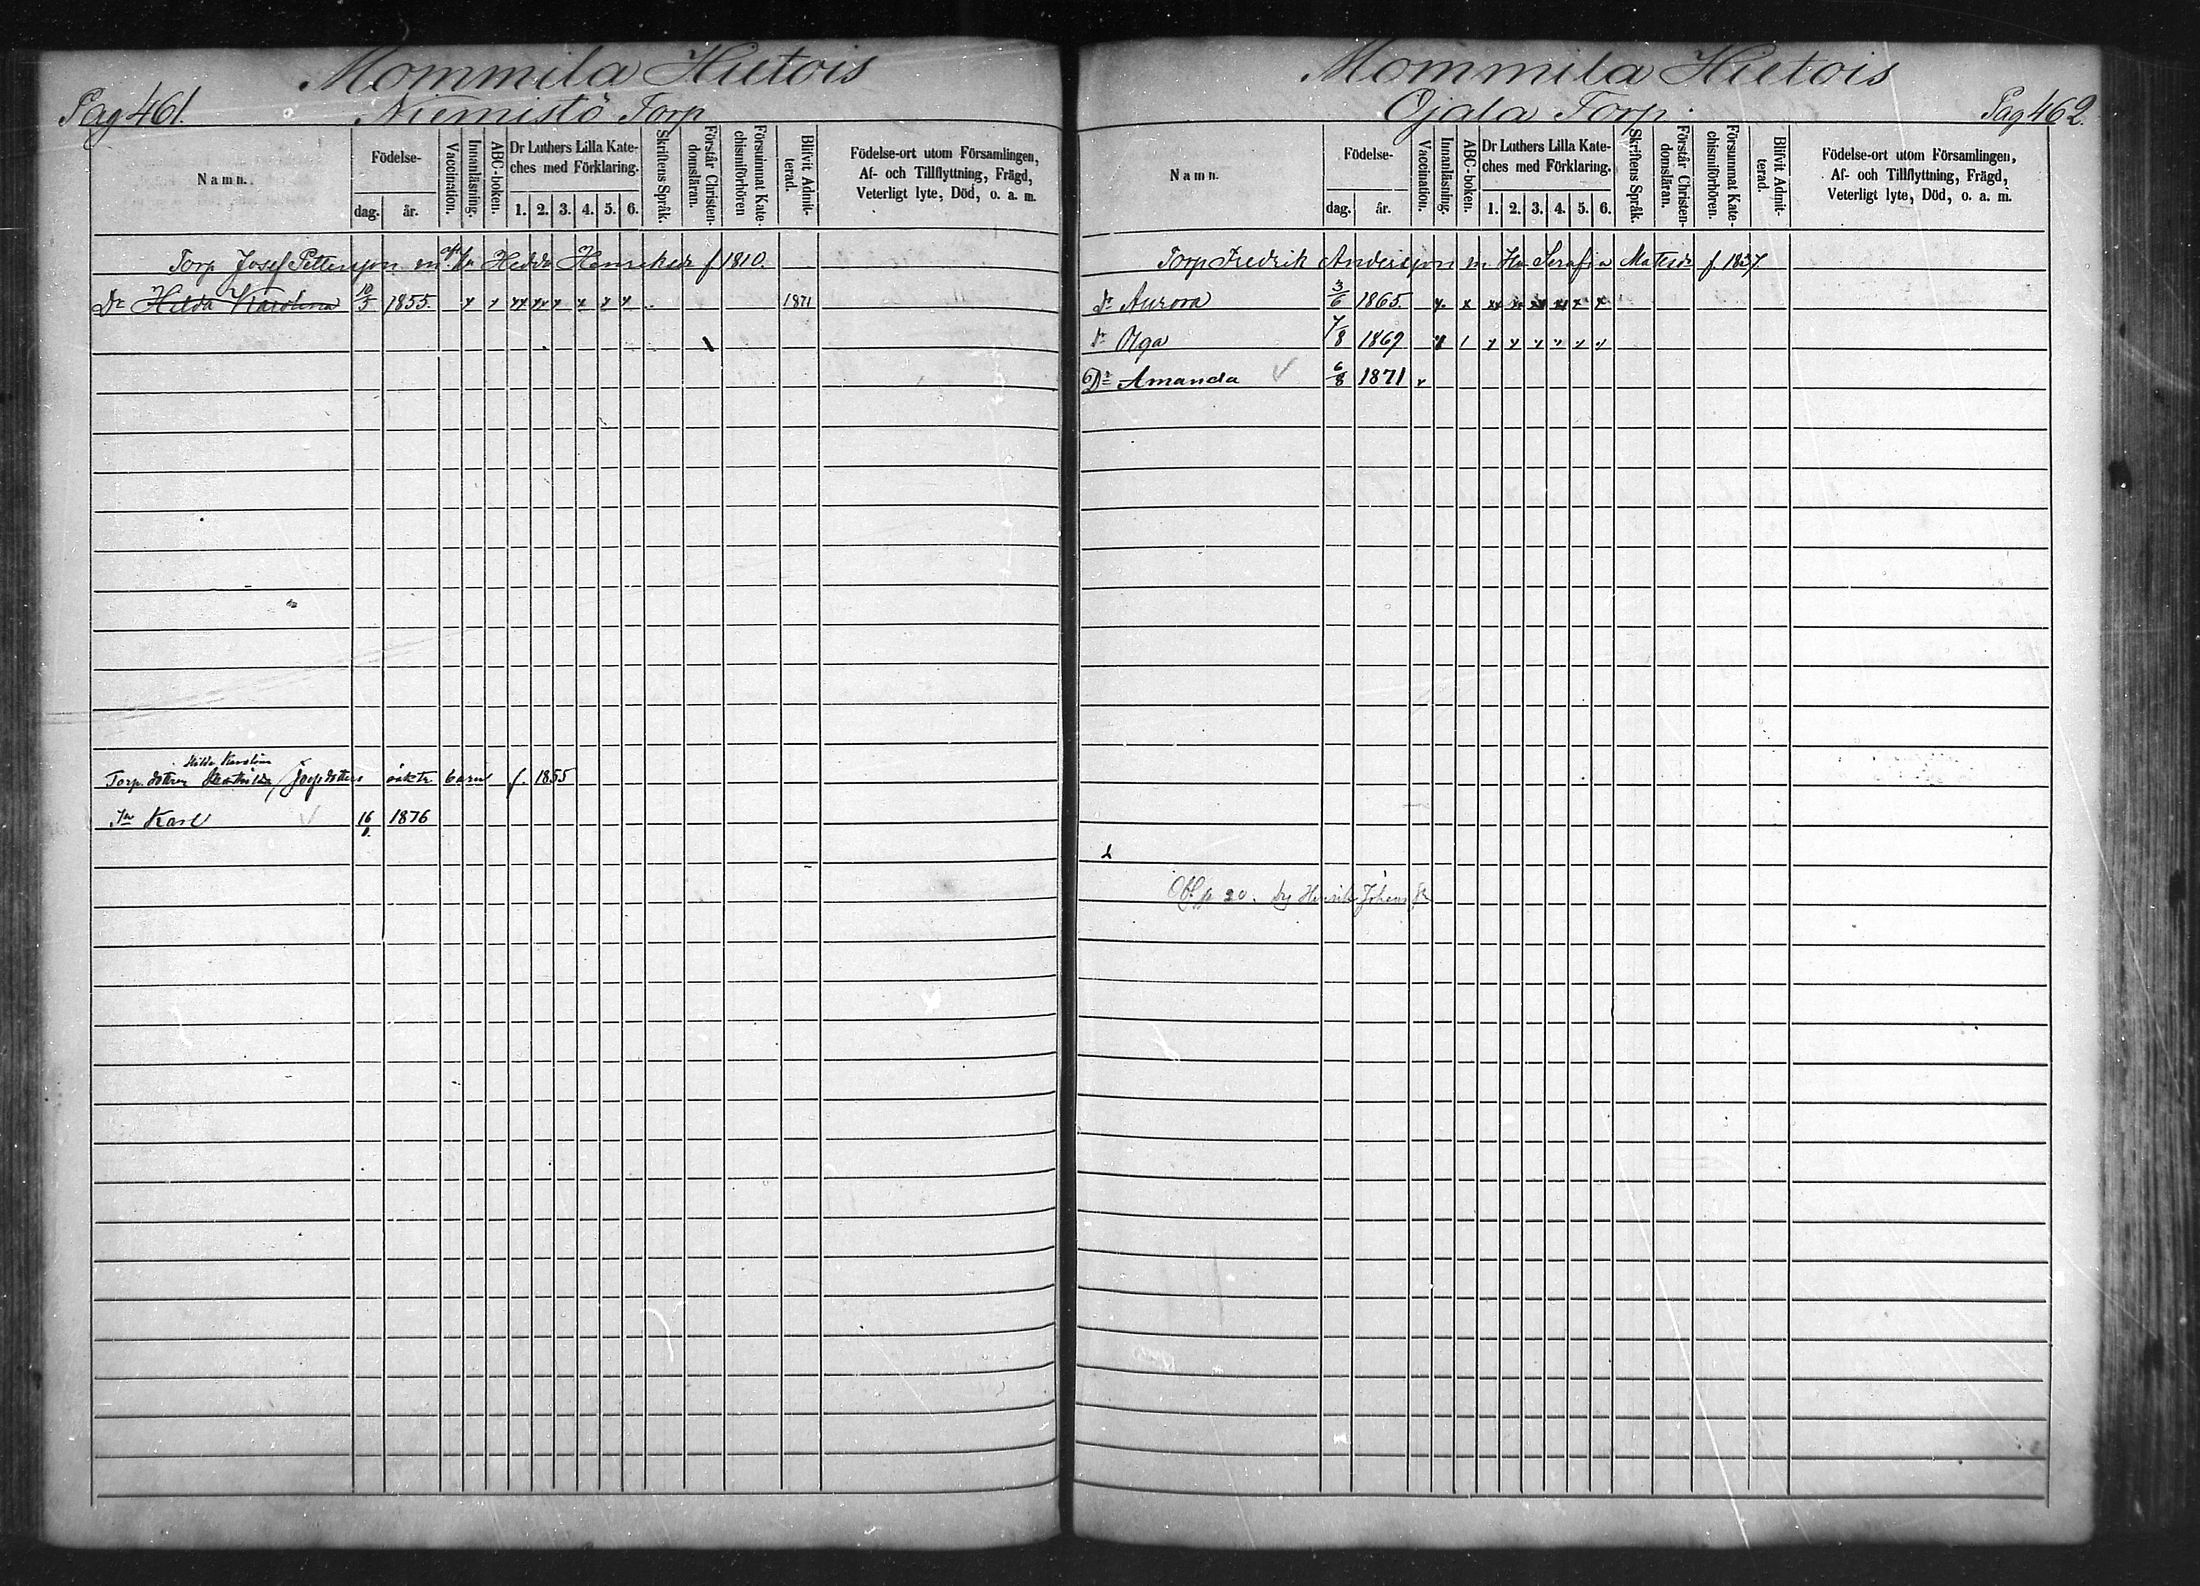 Mommila Hietois
Pag 461.
Niemistö Torp
Namn.
Födelse-
dag.
år.
Vaccination.
Innanläsning.
ABC-boken.
Dr Luthers Lilla Kate-
ches med Förklaring.
1. 2. 3. 4. 5. 6.
Skriftens Språk.
Förstår Christen-
domsläran.
Försummat Kate-
chismiförhören
Blifvit Admit-
terad.
Födelse-ort utom Församlingen,
Af- och Tillflyttning, Frägd,
Veterligt lyte, Död, o. a. m.
Torp Josef Pettersson m Hedda Henriksdr f 1810.
Dr Hilda Karolina 1855. x x xx xx x x x x 1871
Hilda Karolina
Torp. dottren oäkta barn f. 1855
Sn Karl 16 1876
Mommila Hietois
Ojala Torp.
Pag 462.
Namn.
Födelse-
dag.
år.
Vaccination.
Innanläsning.
ABC-boken.
Dr Luthers Lilla Kate-
ches med Förklaring.
1. 2. 3. 4. 5. 6.
Skriftens Språk.
Förstår Christen-
domsläran.
Försummat Kate-
chismiförhören.
Blifvit Admit-
terad.
Födelse-ort utom Församlingen,
Af- och Tillflyttning, Frägd,
Veterligt lyte, Död, o. a. m.
Torp Fredrik Andersson m Hu Serafia Matsdr f. 1837.
dr Aurora 3/6 1865. x x xx xx xx xx x x
dr Olga 7/8 1869 x / x x x x x x
Dr Amanda 6/8 1871 v
p 20.